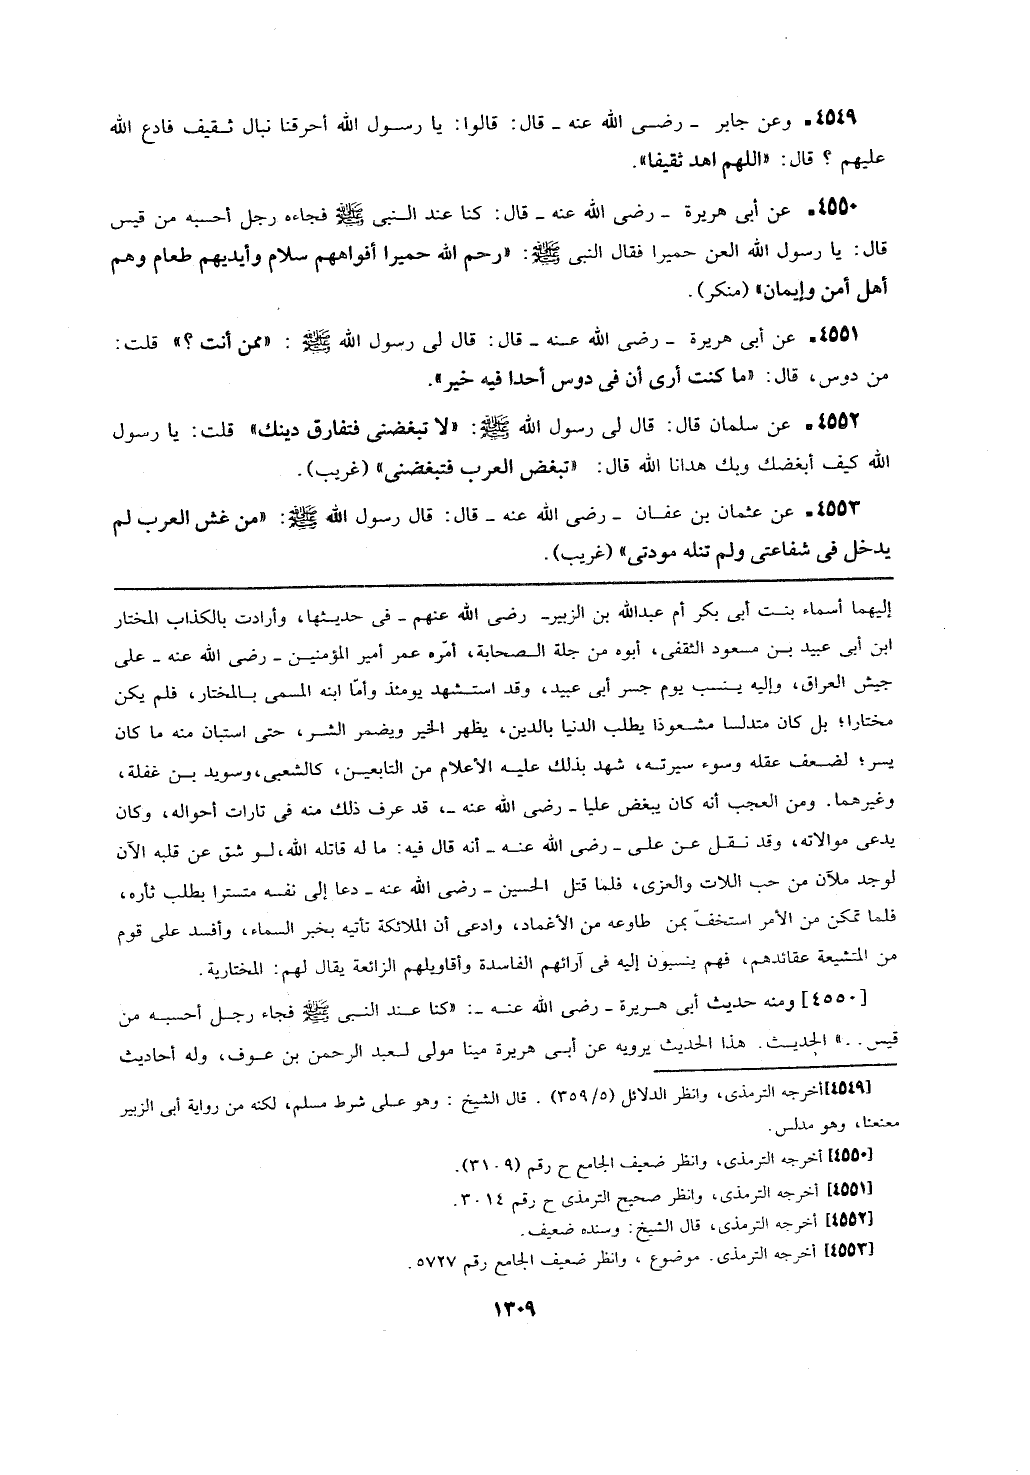 ٤٥٤٩. وعن جابر ـ رضى الله عنه ـ قال: قالوا: يا رسول الله أحرقنا نبال ثقيف فادع الله
عليهم ؟ قال: «اللهم اهد ثقيفا».
٤٥٥٠. عن أبى هريرة ـ رضى الله عنه ـ قال: كنا عند النبى ﷺ فجاءه رجل أحسبه من قيس
قال: يا رسول الله العن حميرا فقال النبى ﷺ: «رحم الله حميرا أفواههم سلام وأيديهم طعام وهم
أهل أمن وإيمان» (منكر).
٤٥٥١. عن أبى هريرة ـ رضى الله عنه ـ قال: قال لى رسول الله ﷺ : «ممن أنت ؟» قلت:
من دوس، قال: «ما كنت أرى أن فى دوس أحدا فيه خير».
٤٥٥٢. عن سلمان قال: قال لى رسول الله ﷺ: «لا تبغضنى فتفارق دينك» قلت: يا رسول
الله كيف أبغضك وبك هدانا الله قال: «تبغض العرب فتبغضنى» (غريب).
٤٥٥٣. عن عثمان بن عفان ـ رضى الله عنه ـ قال: قال رسول الله ﷺ: «من غش العرب لم
يدخل فى شفاعتى ولم تنله مودتى» (غريب).
إليهما أسماء بنت أبى بكر أم عبدالله بن الزبير ـ رضى الله عنهم ـ فى حديثها، وأرادت بالكذاب المختار
ابن أبى عبيد بن مسعود الثقفى، أبوه من جلة الصحابة، أمّره عمر أمير المؤمنين ـ رضى الله عنه ـ على
جيش العراق، وإليه ينسب يوم جسر أبى عبيد، وقد استشهد يومئذ وأمّا ابنه المسمى بالمختار، فلم يكن
مختارا؛ بل كان متدلسا مشعوذا يطلب الدنيا بالدين، يظهر الخير ويضمر الشر، حتى استبان منه ما كان
يسر؛ لضعف عقله وسوء سيرته، شهد بذلك عليه الأعلام من التابعين، كالشعبى، وسويد بن غفلة،
وغيرهما. ومن العجب أنه كان يبغض عليا ـ رضى الله عنه ـ، قد عرف ذلك منه فى تارات أحواله، وكان
يدعى موالاته، وقد نقل عن على ـ رضى الله عنه ـ أنه قال فيه: ما له قاتله الله، لو شق عن قلبه الآن
لوجد ملآن من حب اللات والعزى، فلما قتل الحسين ـ رضى الله عنه ـ دعا إلى نفسه متسترا بطلب ثأره،
فلما تمكن من الأمر استخفّ بمن طاوعه من الأغماد، وادعى أن الملائكة تأتيه بخبر السماء، وأفسد على قوم
من المتشيعة عقائدهم، فهم ينسبون إليه فى آرائهم الفاسدة وأقاويلهم الزائعة يقال لهم: المختارية.
[٤٥٥٠] ومنه حديث أبى هريرة ـ رضى الله عنه ـ: «كنا عند النبى ﷺ فجاء رجل أحسبه من
قيس . .» الحديث. هذا الحديث يرويه عن أبى هريرة مينا مولى لعبد الرحمن بن عوف، وله أحاديث
[٤٥٤٩] أخرجه الترمذى، وانظر الدلائل (٣٥٩/٥) . قال الشيخ : وهو على شرط مسلم، لكنه من رواية أبى الزبير
معنعنا، وهو مدلس.
[٤٥٥٠] أخرجه الترمذى، وانظر ضعيف الجامع ح رقم (٣١٠٩).
[٤٥٥١] أخرجه الترمذى، وانظر صحيح الترمذى ح رقم ٣٠١٤.
[٤٥٥٢] أخرجه الترمذى، قال الشيخ: وسنده ضعيف.
[٤٥٥٣] أخرجه الترمذى. موضوع ، وانظر ضعيف الجامع رقم ٥٧٢٧.
١٣٠٩